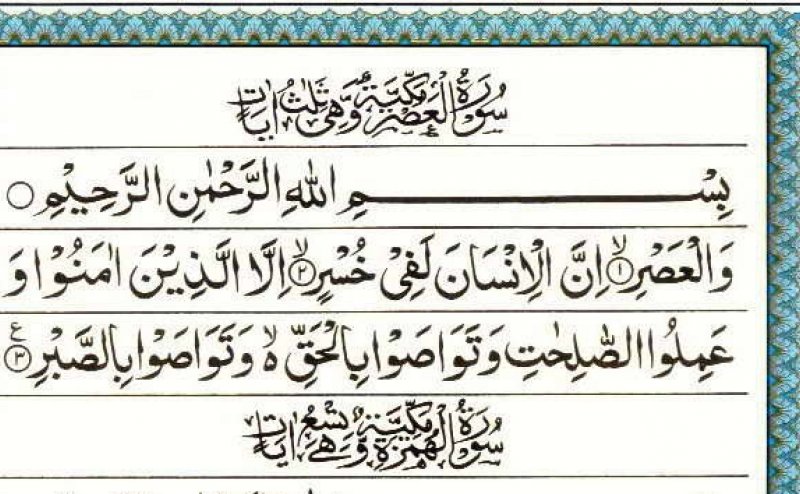 سُوْرَةُ الْعَصْرِ مَكِّيَّةٌ وَّهِيَ ثَلٰثُ اٰيَاتٍ
بِسْمِ اللّٰهِ الرَّحْمٰنِ الرَّحِيْمِ ○
وَالْعَصْرِۙ۝۱ اِنَّ الْاِنْسَانَ لَفِیْ خُسْرٍۙ۝۲ اِلَّا الَّذِیْنَ اٰمَنُوْا وَ
عَمِلُوا الصّٰلِحٰتِ وَتَوَاصَوْا بِالْحَقِّ ۙ۬ وَتَوَاصَوْا بِالصَّبْرِ۝۳ ع
سُوْرَةُ الْهُمَزَةِ مَكِّيَّةٌ وَّهِيَ تِسْعُ اٰيَاتٍ